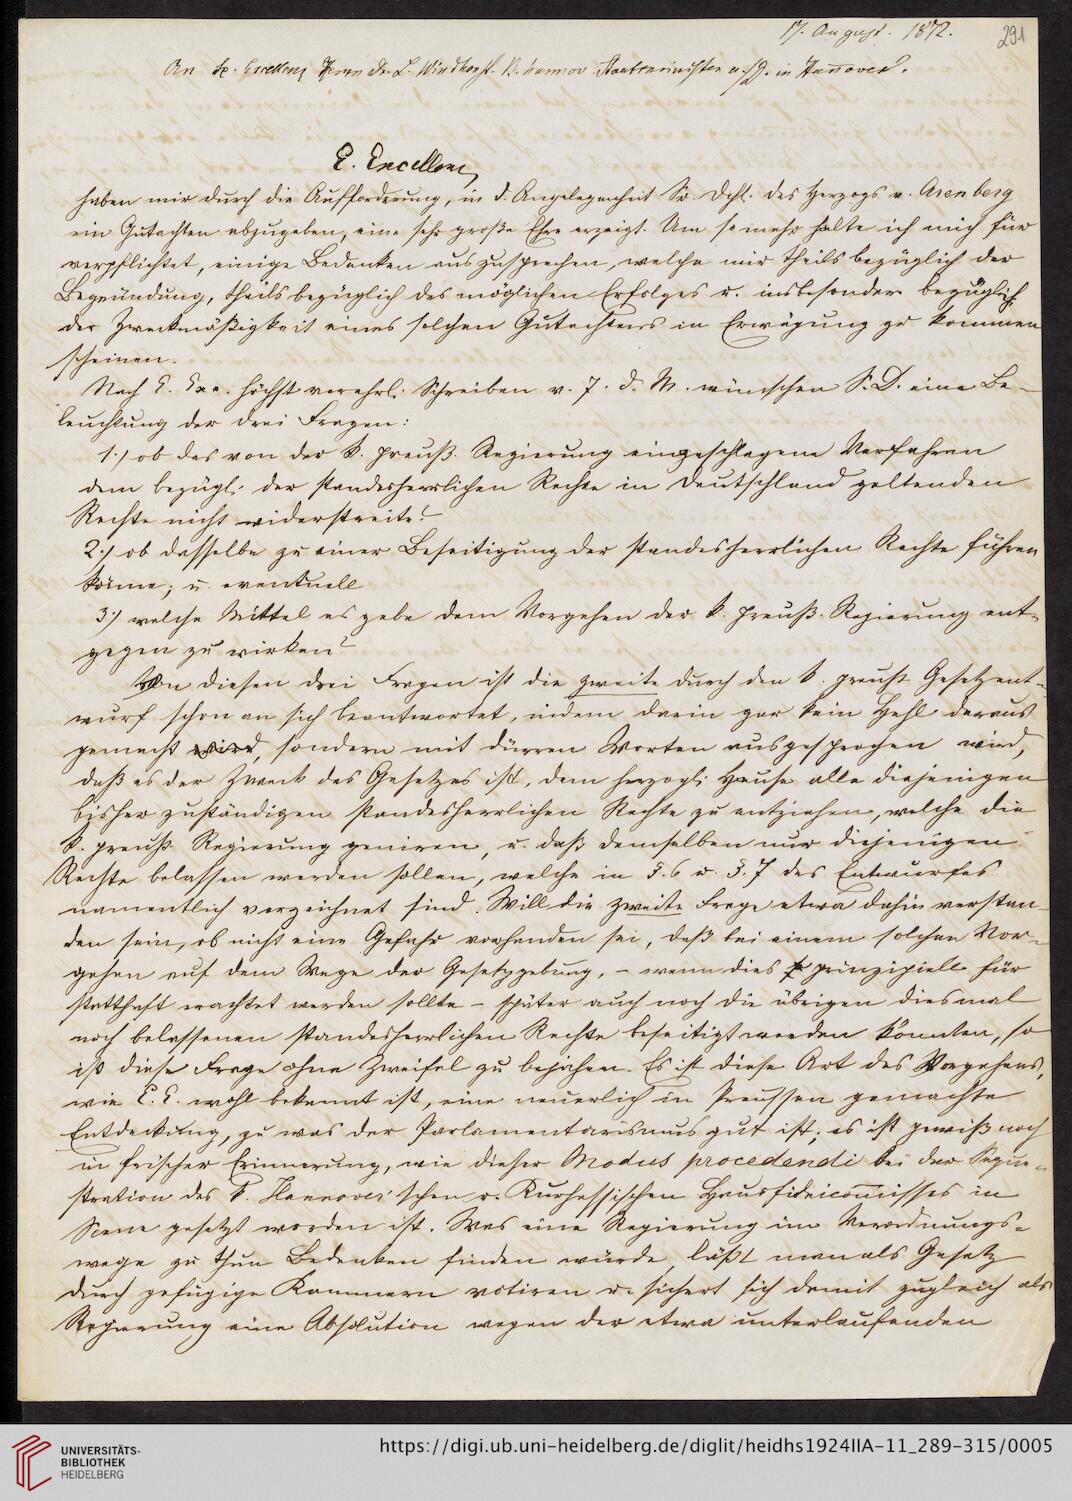 17. August. 1872.
291
An Se. Excellenz Herrn Dr. L. Windthorst. K. hannov. Staatsminister a./D. in Hannover.
E. Excellenz
haben mir durch die Aufforderung, in d. Angelegenheit Sr. Dchl. des Herzogs v. Arenberg
ein Gutachten abzugeben, eine sehr große Ehre erzeigt. Um so mehr halte ich mich für
verpflichtet, einige Bedenken auszusprechen, welche mir theils bezüglich der
Begründung, theils bezüglich des möglichen Erfolges u. insbesondere bezüglich
der Zweckmäßigkeit eines solchen Gutachtens in Erwägung zu kommen
scheinen.
Nach E. Exc. höchst verehrl. Schreiben v. 7. d. M. wünschen S. D. eine Be-
leuchtung der drei Fragen:
1.) ob das von der k. preuß. Regierung eingeschlagene Verfahren
dem bezügl. der standesherrlichen Rechte in Deutschland geltenden
Rechte nicht widerstreite?
2.) ob dasselbe zu einer Beseitigung der standesherrlichen Rechte führen
könne; u. eventuell
3.) welche Mittel es gebe dem Vorgehen der k. preuß. Regierung ent-
gegen zu wirken?
Von diesen drei Fragen ist die zweite durch den k. preuß. Gesetzent-
wurf schon an sich beantwortet, indem darin gar kein Hehl daraus
gemacht wird, sondern mit dürren Worten ausgesprochen wird,
daß es der Zweck des Gesetzes ist, dem herzogl. Hause alle diejenigen
bisher zuständigen standesherrlichen Rechte zu entziehen, welche die
k. preuß. Regierung geniren, u. daß demselben nur diejenigen
Rechte belassen werden sollen, welche in §. 6 u. §. 7 des Entwurfes
namentlich verzeichnet sind. Will die zweite Frage etwa dahin verstan-
den sein, ob nicht eine Gefahr vorhanden sei, daß bei einem solchen Vor-
gehen auf dem Wege der Gesetzgebung, – wenn dies prinzipiell für
statthaft erachtet werden sollte – später auch noch die übrigen diesmal
noch belassenen standesherrlichen Rechte beseitigt werden könnten, so
ist diese Frage ohne Zweifel zu bejahen. Es ist diese Art des Vorgehens,
wie E. E. wohl bekannt ist, eine neuerlich in Preussen gemachte
Entdeckung, zu was der Parlamentarismus gut ist; es ist gewiß noch
in frischer Erinnerung, wie dieser Modus procedendi bei der Seque-
stration des k. Hannover'schen u. Kurhessischen Hausfideicomisses in
Scene gesetzt worden ist. Was eine Regierung im Verordnungs-
wege zu thun Bedenken finden würde, läßt man als Gesetz
durch gefügige Kammern votiren u. sichert sich damit zugleich als
Regierung eine Absolution wegen der etwa unterlaufenden
UNIVERSITÄTS-
BIBLIOTHEK
HEIDELBERG
https://digi.ub.uni-heidelberg.de/diglit/heidhs1924IIA-11_289-315/0005